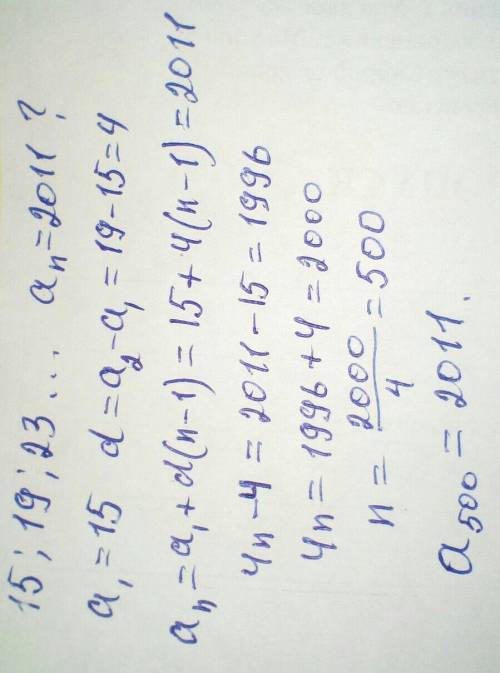 15; 19; 23... aₙ=2011?
a₁=15 d=a₂-a₁=19-15=4
aₙ=a₁+d(n-1)=15+4(n-1)=2011
4n-4=2011-15=1996
4n=1996+4=2000
n=2000/4=500
a₅₀₀=2011.